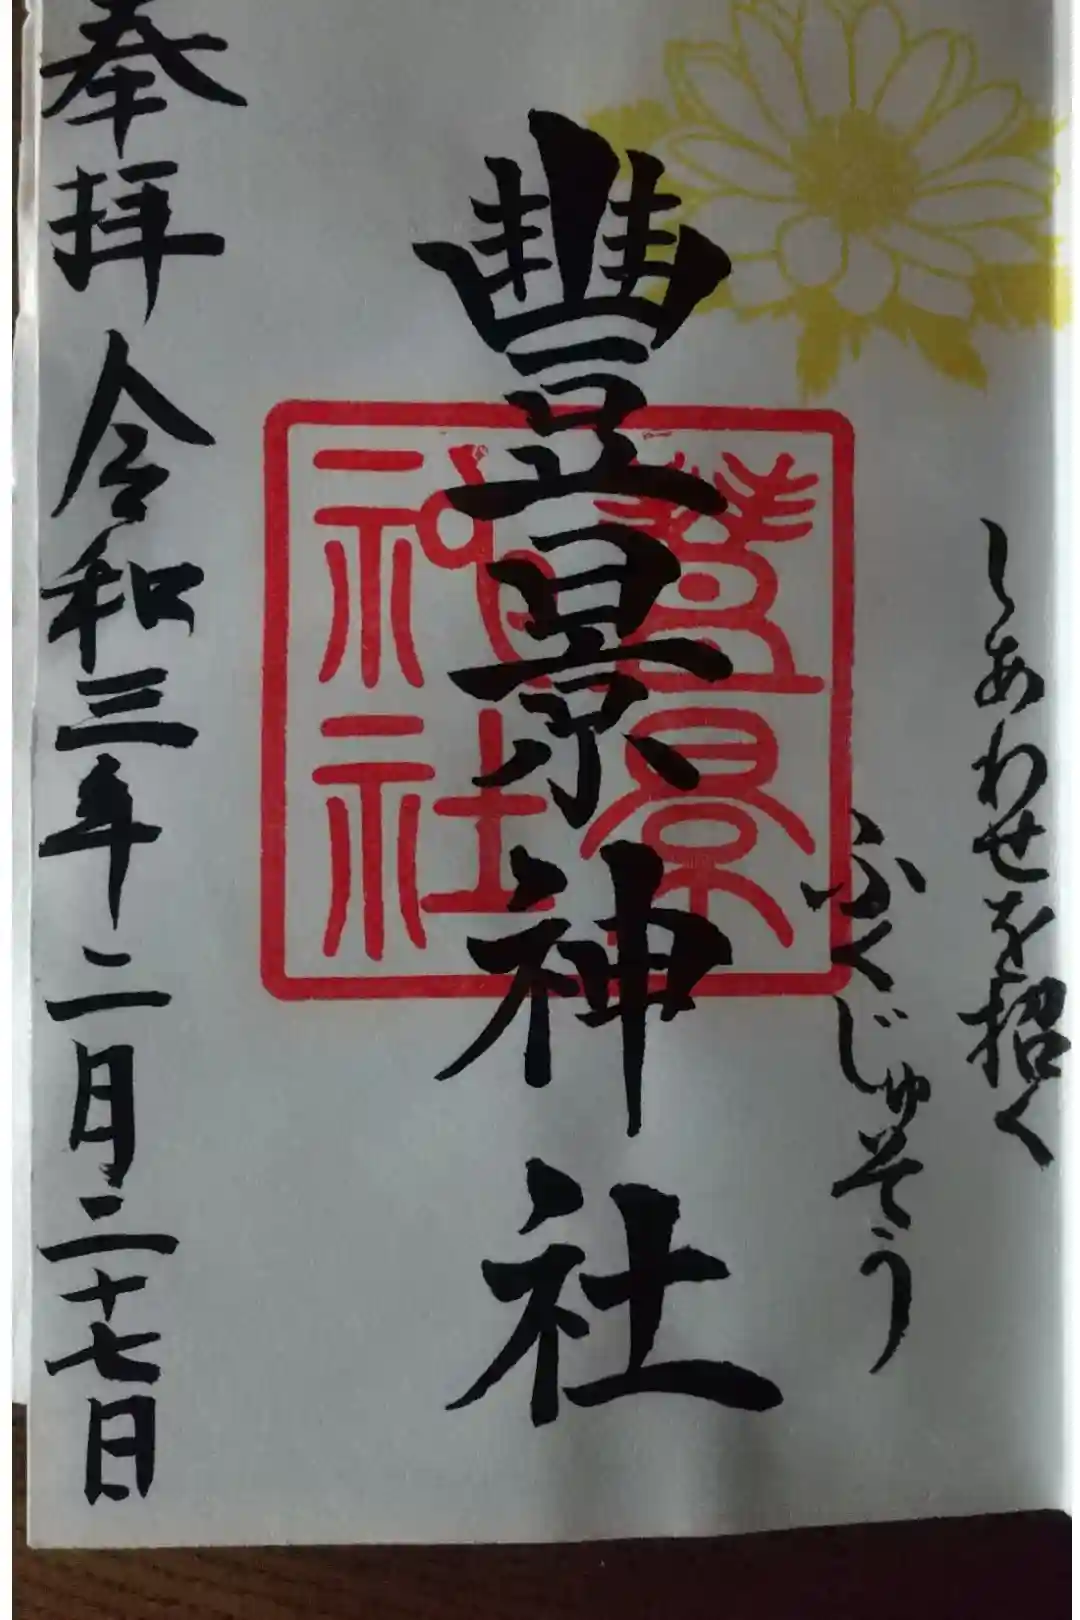 しあわせを招く
ふくじゅそう
豊景神社
豊景神社
奉拝 令和三年二月二十七日